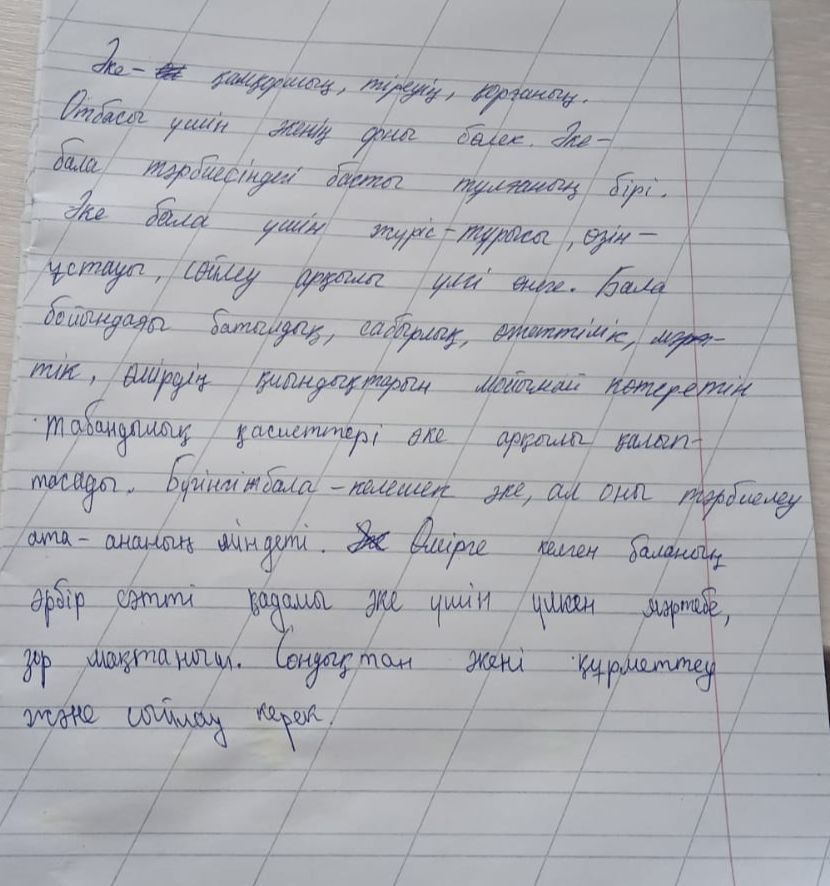 Әке- қамқоршың, тірегің, қорғаның.
Отбасы үшін әкенің орны бөлек. Әке-
бала тәрбиесіндегі басты тұлғаның бірі.
Әке бала үшін жүріс-тұрысы, өзін-
ұстауы, сөйлеу арқылы үлгі өнеге. Бала
бойындағы батылдық, сабырлық, әдептілік, мәрт-
тік, өмірдің қиындықтарын мойымай көтеретін
табандылық қасиеттері әке арқылы қалып-
тасады. Бүгінгі бала - келешек әке, ал оны тәрбиелеу
ата-ананың міндеті. Өмірге келген баланың
әрбір сәтті қадамы әке үшін үлкен мәртебе,
зор мақтаныш. Сондықтан әкені құрметтеу
және сыйлау керек.